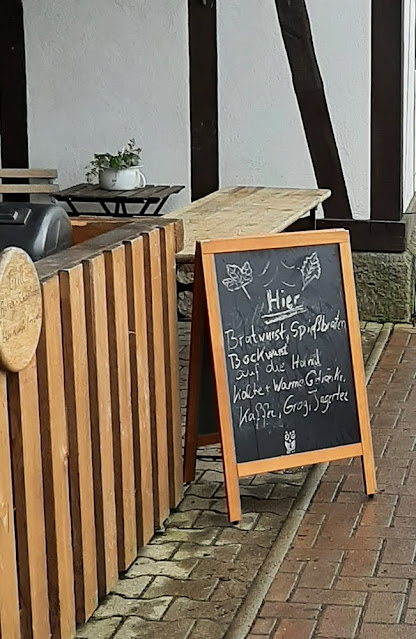 Hier
Bratwurst, Spießbraten
Bockwurst
auf die Hand
Kalte + Warme Getränke.
Kaffee, Grog, Jagertee